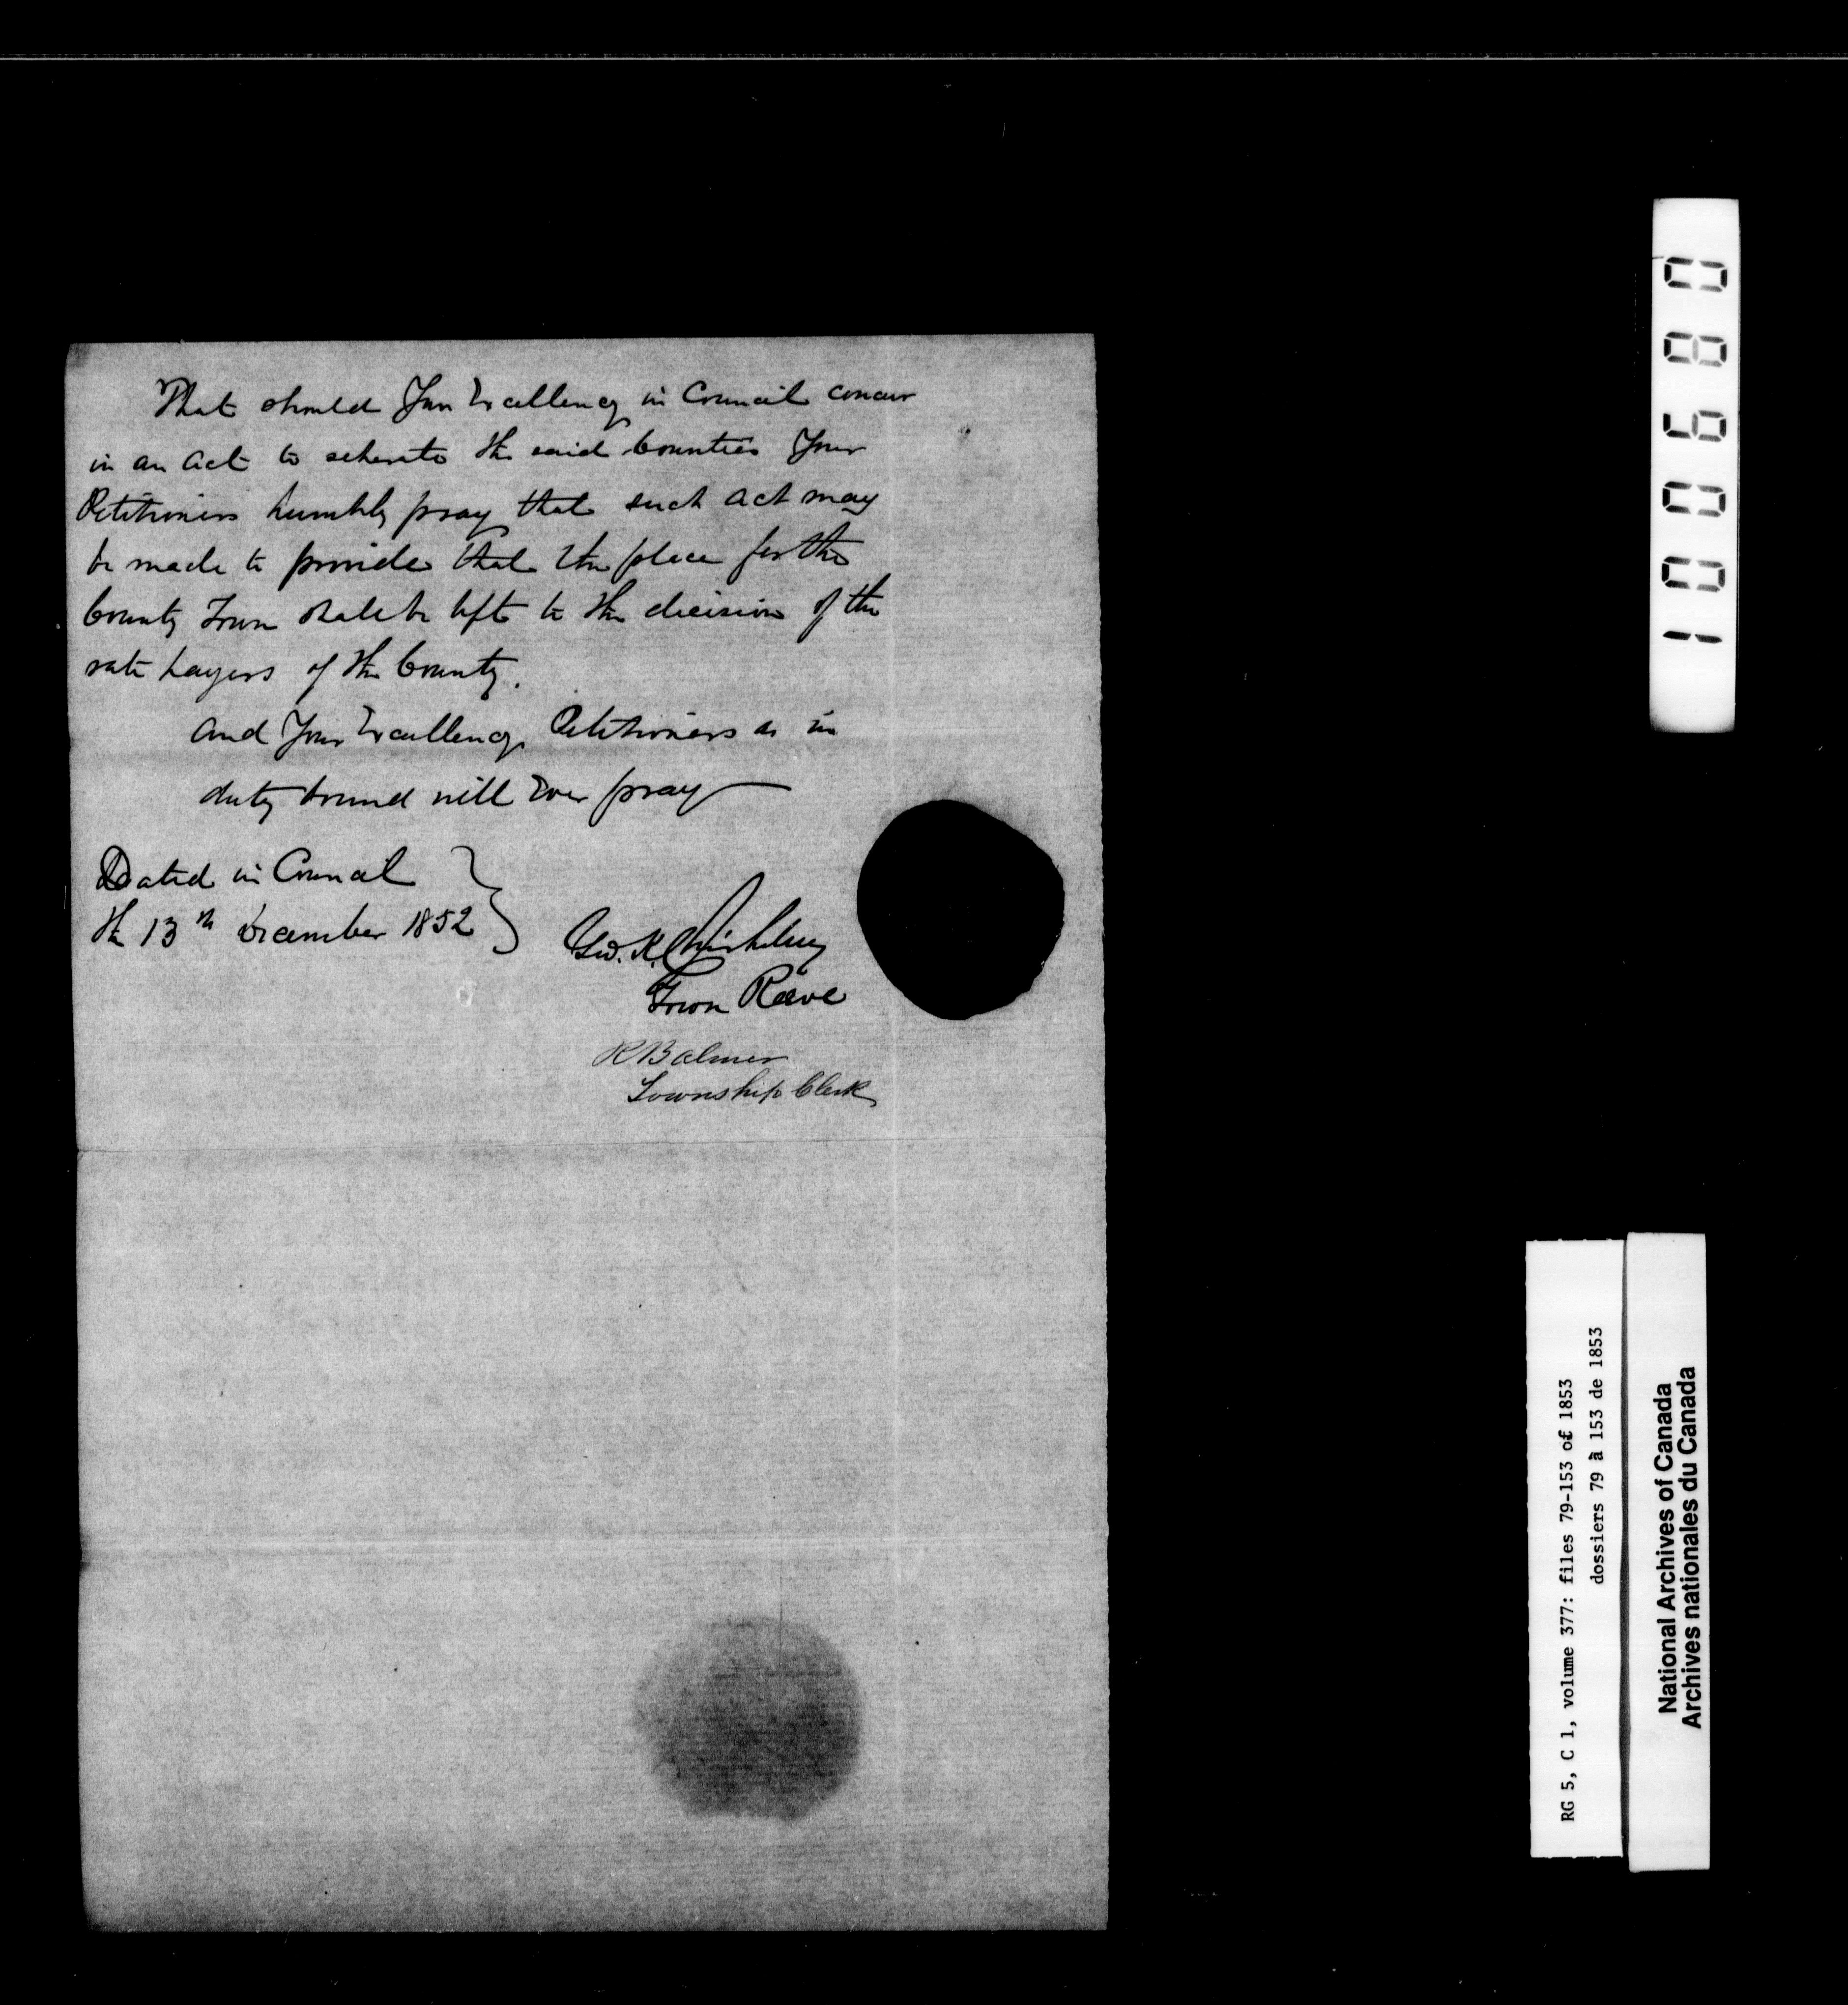 That should Your Excellency in Council concur
in an act to seperate the said Counties Your
Petitioners humbly pray that such act may
be made to provide that the place for the
County Town shall be left to the decision of the
rate payers of the County.
And Your Excellency Petitioners as in
duty bound will Ever pray
Dated in Council
the 13th December 1852
Geo. K.
Town Reeve
R Balmer
Township Clerk
100680
RG 5, C 1, volume 377: files 79-153 of 1853
dossiers 79 à 153 de 1853
National Archives of Canada
Archives nationales du Canada